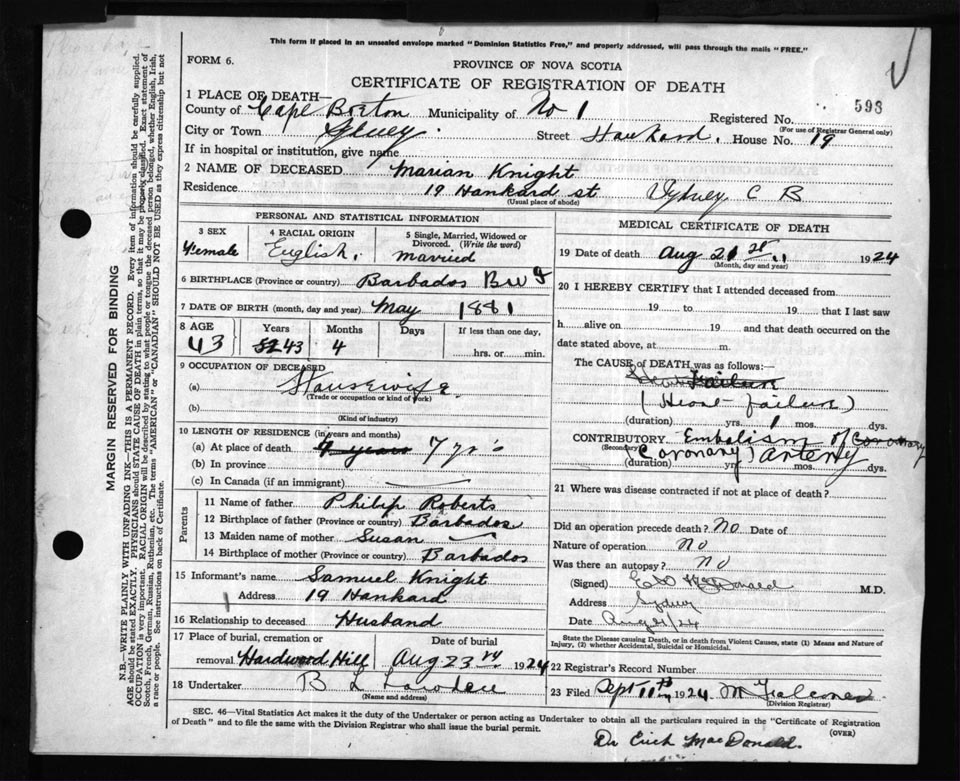 This form if placed in an unsealed envelope marked "Dominion Statistics Free," and properly addressed, will pass through the mails "FREE."
FORM 6.
PROVINCE OF NOVA SCOTIA
CERTIFICATE OF REGISTRATION OF DEATH
1 PLACE OF DEATH—
598
County of Cape Breton Municipality of No 1 Registered No.
(For use of Registrar General only)
City or Town Sydney. Street Hankard. House No. 19
If in hospital or institution, give name
2 NAME OF DECEASED Marian Knight
Residence 19 Hankard st Sydney C B
(Usual place of abode)
PERSONAL AND STATISTICAL INFORMATION
3 SEX
Female
4 RACIAL ORIGIN
English.
5 Single, Married, Widowed or Divorced. (Write the word)
married
6 BIRTHPLACE (Province or country) Barbados B W I
7 DATE OF BIRTH (month, day and year) May 1881
8 AGE Years Months Days If less than one day,
43 52 43 4 hrs. or min.
9 OCCUPATION OF DECEASED
(a) Housewife
(Trade or occupation or kind of work)
(b)
(Kind of industry)
10 LENGTH OF RESIDENCE (in years and months)
(a) At place of death years 7 yrs
(b) In province
(c) In Canada (if an immigrant)
Parents
11 Name of father Philip Roberts
12 Birthplace of father (Province or country) Barbados
13 Maiden name of mother Susan
14 Birthplace of mother (Province or country) Barbados
15 Informant's name Samuel Knight
Address 19 Hankard
16 Relationship to deceased Husband
17 Place of burial, cremation or removal Hardwood Hill
Date of burial
Aug 23 1924
18 Undertaker B L
(Name and address)
MEDICAL CERTIFICATE OF DEATH
19 Date of death Aug 21 st 1924
(Month, day and year)
20 I HEREBY CERTIFY that I attended deceased from
19 to 19 that I last saw
h alive on 19 and that death occurred on
date stated above, at m.
The CAUSE OF DEATH was as follows:—
Heart Failure
(Heart failure)
(duration) yrs. mos. dys.
CONTRIBUTORY Embolism of Coronary
(Secondary) Coronary) Artery
(duration) yrs. mos. dys.
21 Where was disease contracted if not at place of death?
Did an operation precede death? NO Date of
Nature of operation No
Was there an autopsy? No
(Signed) McDonald M.D.
Address Sydney
Date Aug 21/24
State the Disease causing Death, or in death from Violent Causes, state (1) Means and Nature of
Injury, (2) whether Accidental, Suicidal or Homicidal.
22 Registrar's Record Number
23 Filed Sept 11th 1924 M Falconer
(Division Registrar)
SEC. 46—Vital Statistics Act makes it the duty of the Undertaker or person acting as Undertaker to obtain all the particulars required in the "Certificate of Registration
of Death" and to file the same with the Division Registrar who shall issue the burial permit.
(OVER)
Dr Erich MacDonald
MARGIN RESERVED FOR BINDING
N.B.—WRITE PLAINLY WITH UNFADING INK—THIS IS A PERMANENT RECORD. Every item of information should be carefully supplied.
AGE should be stated EXACTLY. PHYSICIANS should STATE CAUSE OF DEATH in plain terms, so that it may be properly classified. Exact statement of
OCCUPATION is very important. RACIAL ORIGIN will be described by stating to what people or tongue the deceased person belonged, whether English, Irish,
Scotch, French, German, Russian, Ruthenian, etc. The terms "AMERICAN" or "CANADIAN" SHOULD NOT BE USED as they express citizenship but not
a race or people. See instructions on back of Certificate.